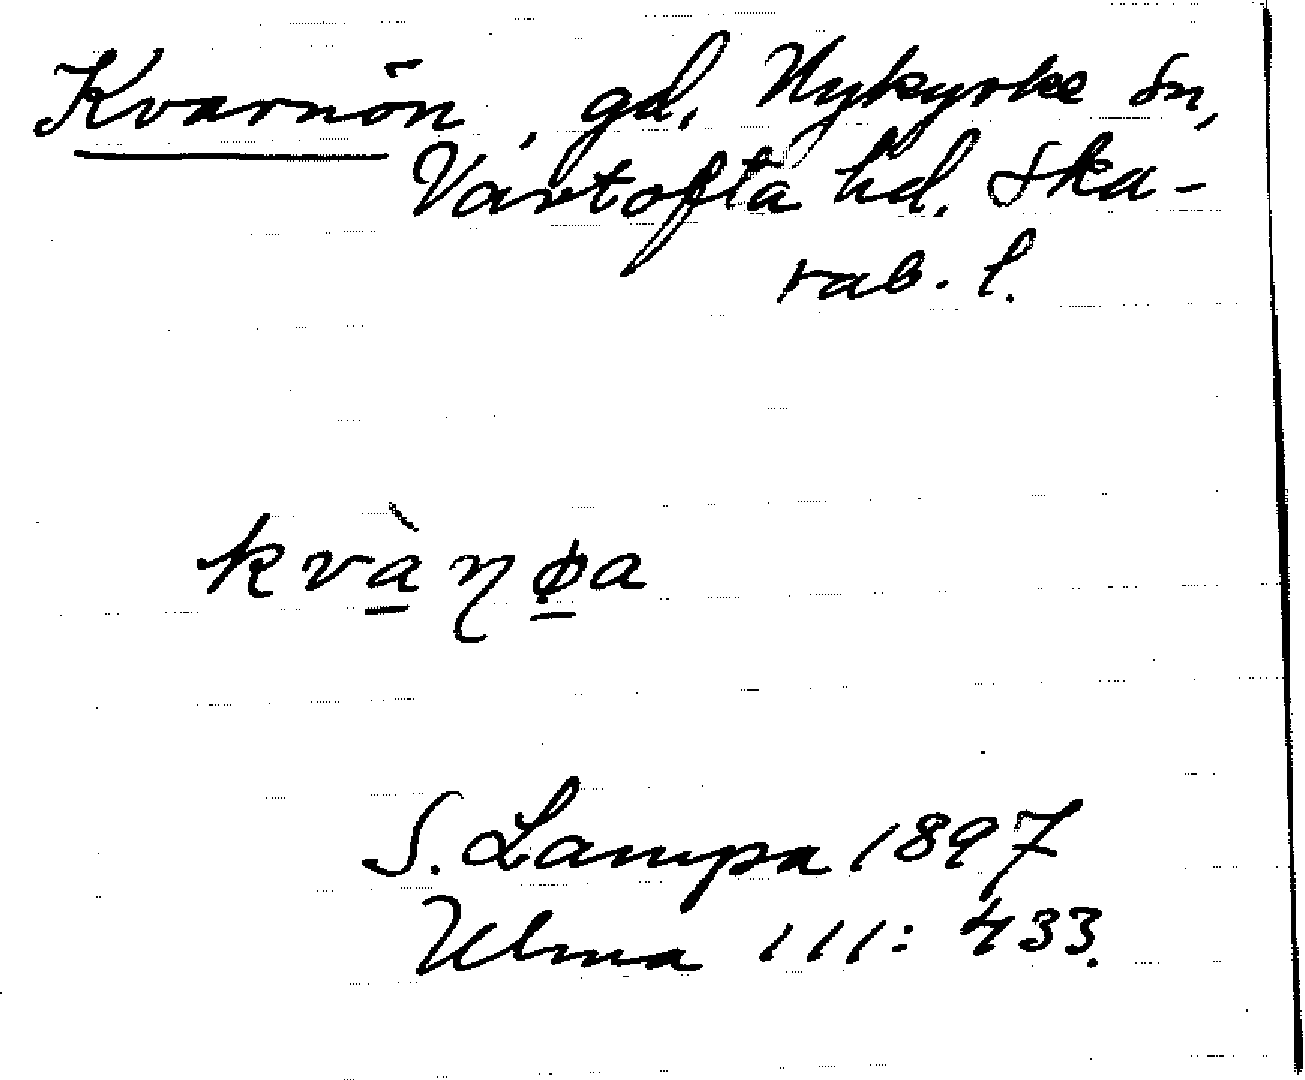 Kvarnön, gd, Nykyrke sn,
Vartofta hd. Ska-
rab. l.
kvàɳøa
S. Lampa 1897
Ulma 111: 433.